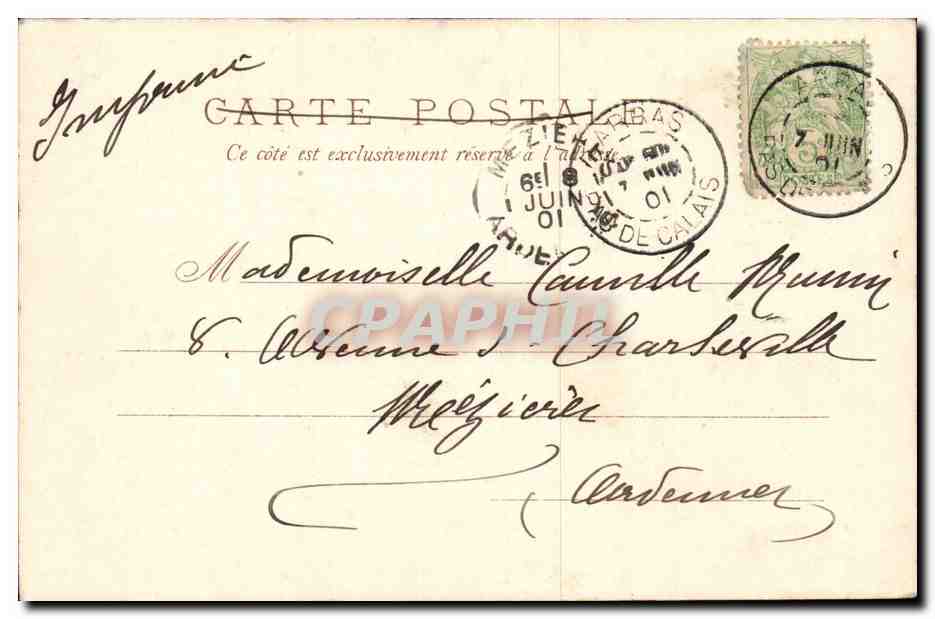 Imprimé
CARTE POSTALE
Ce côté est exclusivement réservé à l'adresse
ARRAS
7 JUIN
01
PAS DE CALAIS
MEZIE
6E 8
JUIN
01
ARDE
ARRA
7 JUIN
01
PAS DE
Mademoiselle Camille
8. Avenue d Charleville
Mézières
Ardennes
CPAPHIL